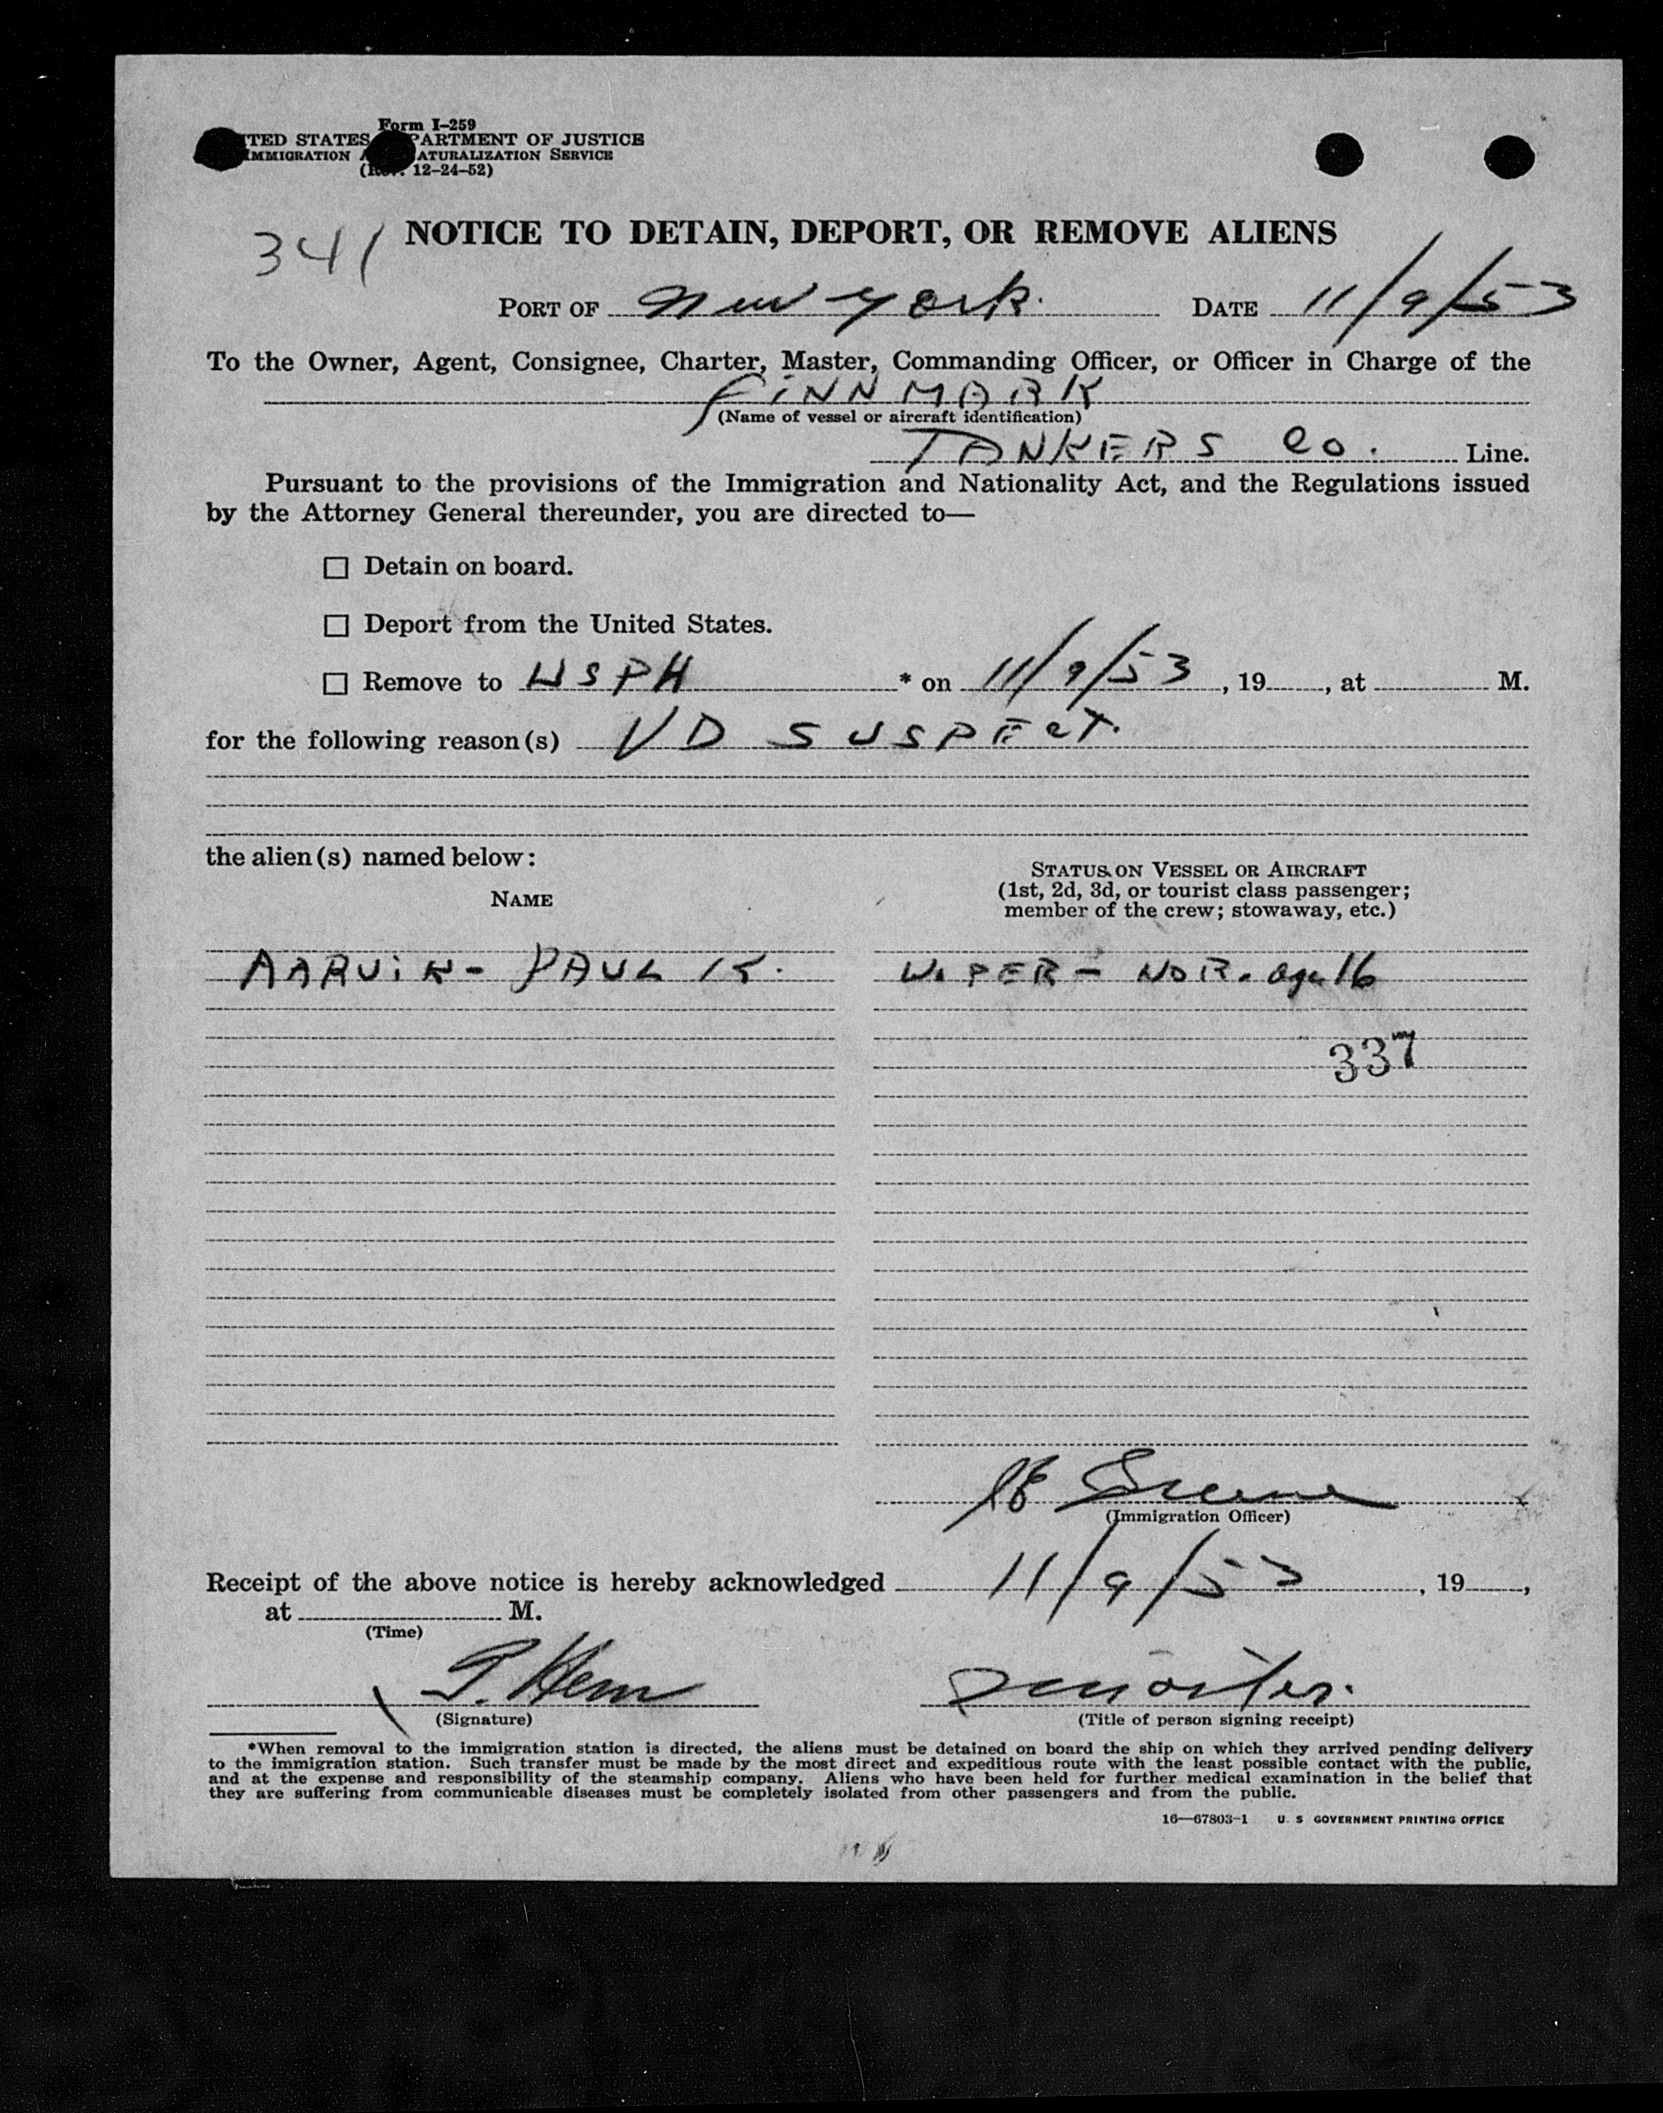 Form I-259
TED STATES PARTMENT OF JUSTICE
IMMIGRATION A ATURALIZATION SERVICE
(R . 12-24-52)
341
NOTICE TO DETAIN, DEPORT, OR REMOVE ALIENS
PORT OF New York. DATE 11/9/53
To the Owner, Agent, Consignee, Charter, Master, Commanding Officer, or Officer in Charge of the
FINNMARK
(Name of vessel or aircraft identification)
TANKERS Co. Line.
Pursuant to the provisions of the Immigration and Nationality Act, and the Regulations issued
by the Attorney General thereunder, you are directed to—
☐ Detain on board.
☐ Deport from the United States.
☐ Remove to USPH * on 11/9/53, 19 , at M.
for the following reason(s) VD SUSPECT.
the alien(s) named below:
NAME
STATUS ON VESSEL OR AIRCRAFT
(1st, 2d, 3d, or tourist class passenger;
member of the crew; stowaway, etc.)
AARVIK - PAUL K. WIPER - NOR. age 16
337
(Immigration Officer)
Receipt of the above notice is hereby acknowledged 11/9/53, 19 ,
at M.
(Time)
(Signature) (Title of person signing receipt)
*When removal to the immigration station is directed, the aliens must be detained on board the ship on which they arrived pending delivery
to the immigration station. Such transfer must be made by the most direct and expeditious route with the least possible contact with the public,
and at the expense and responsibility of the steamship company. Aliens who have been held for further medical examination in the belief that
they are suffering from communicable diseases must be completely isolated from other passengers and from the public.
16—67803-1 U. S GOVERNMENT PRINTING OFFICE